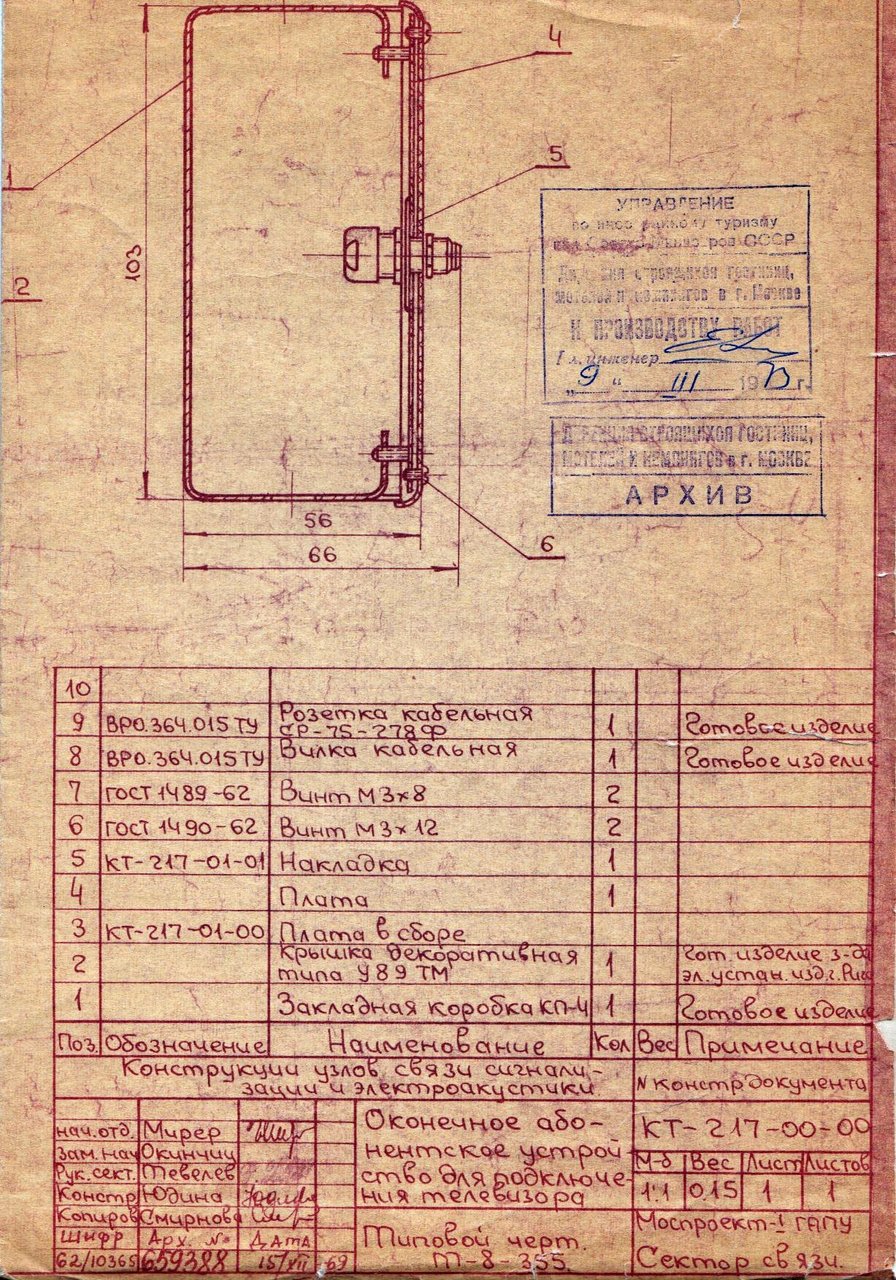 4
5
1
2
103
56
66
6
УПРАВЛЕНИЕ
туризму
СССР
строящихся гостиниц,
в г. Москве
К ПРОИЗВОДСТВУ РАБОТ
Гл. инженер
„9“ III 1973 г.
ДИРЕКЦИЯ СТРОЯЩИХСЯ ГОСТИНИЦ,
МОТЕЛЕЙ И КЕМПИНГОВ в г. МОСКВЕ
АРХИВ
10
9 ВРО.364.015 ТУ Розетка кабельная СР-75-278Ф 1 Готовое изделие
8 ВРО.364.015 ТУ Вилка кабельная 1 Готовое изделие
7 ГОСТ 1489-62 Винт М3×8 2
6 ГОСТ 1490-62 Винт М3×12 2
5 КТ-217-01-01 Накладка 1
4 Плата 1
3 КТ-217-01-00 Плата в сборе
2 Крышка декоративная типа У89ТМ 1 Гот. изделие з-да эл. устан. изд. г. Рига
1 Закладная коробка КП-4 1 Готовое изделие
Поз. Обозначение Наименование Кол Вес Примечание
Конструкции узлов связи сигнали-
зации и электроакустики.
N констр документа
Оконечное або-
нентское устрой
ство для подключе-
ния телевизора
КТ-217-00-00
М-б Вес Лист Листов
1:1 0.15 1 1
нач.отд. Мирер
Зам.нач Окинчиц
Рук.сект. Тевелев
Констр Юдина
Копиров Смирнова
Шифр Арх. № Дата
62/10365 659388 15/XII 69
Типовой черт.
Т-8-355.
Моспроект-1 ГАПУ
Сектор связи.